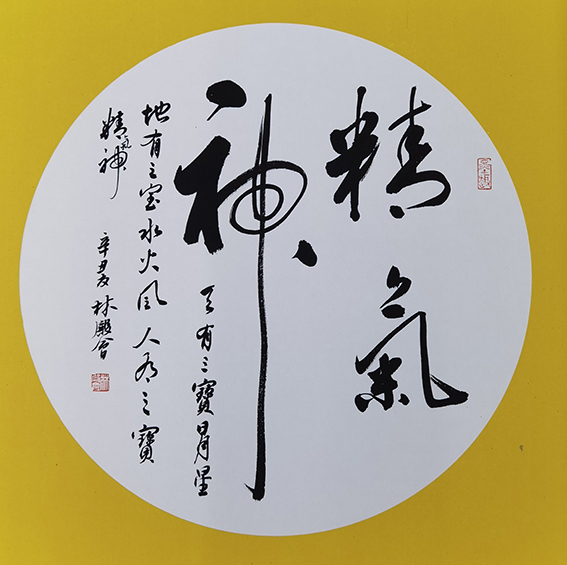 精氣
神
天有三寶日月星
地有三宝水火风人有三寶
精氣神
辛丑夏 林